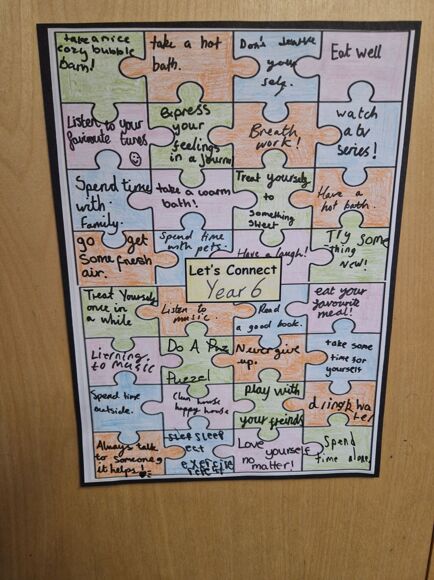 take a nice
cozy bubble
Bath!
take a hot
bath.
Don't
your
self.
Eat well
Listen to your
favourite tunes
express
your
feelings
in a journal
Breath
work!
watch
a tv
series!
Spend time
with
Family.
take a warm
bath!
Treat yourself
to
something
sweet
Have a
hot bath.
go get
Some fresh
air.
Spend time
with pets.
Have a laugh!
Try some
thing
New!
Let's Connect
Year 6
Treat Yourself
once in
a while
Listen to
music.
Read
a good book.
eat your
favourite
meal!
Listning
to music
Do A
Puzzel
Never give
up.
take some
time for
yourself
Spend time
outside.
Clean house
happy house
play with
your freinds
drink wa
ter
Always talk
to Someone
it helps!
sleep sleep
eat
exercise
repeat
Love yourself
no
matter!
Spend
time alone